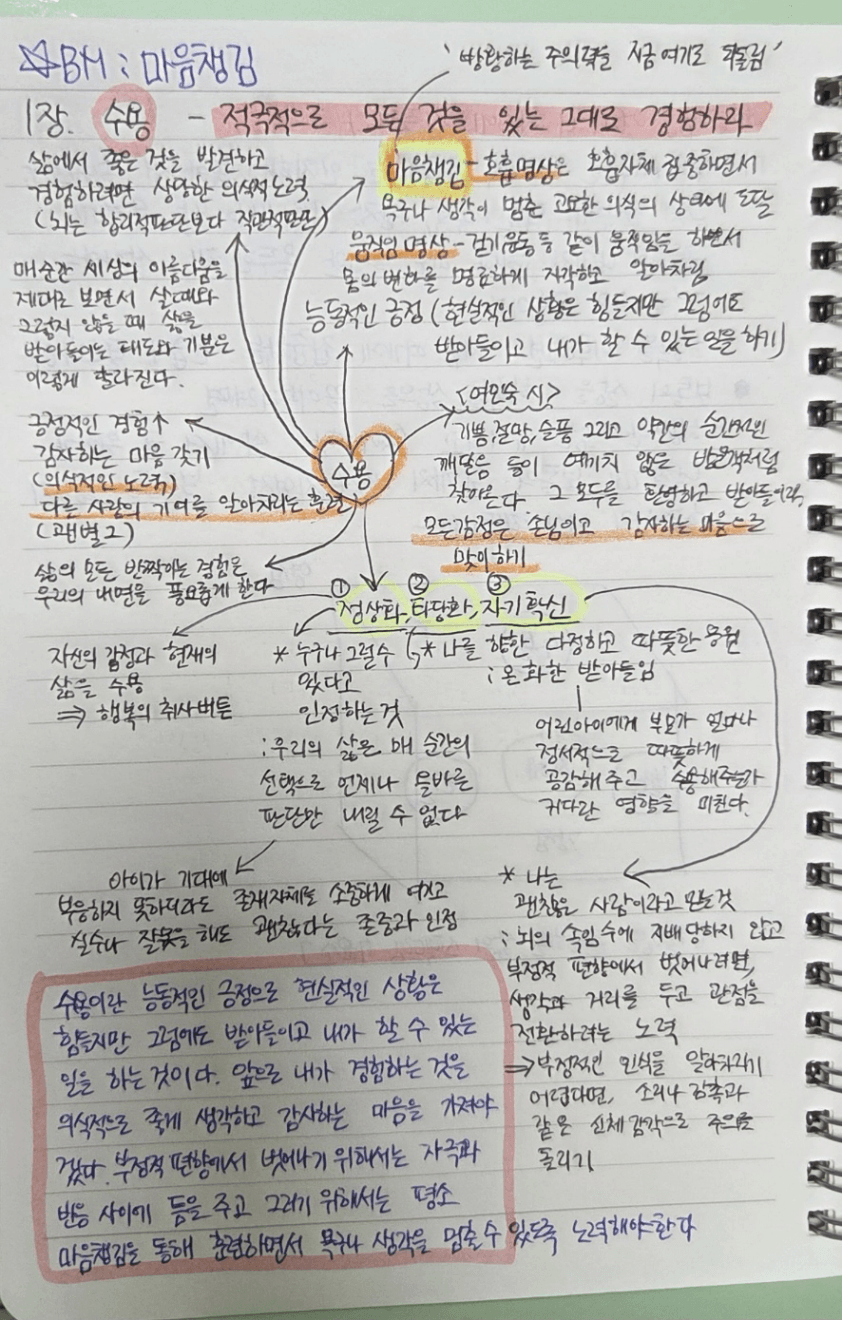 ☆BM : 마음챙김
'방황하는 주의력을 지금 여기로 되돌림'
1장. 수용 - 적극적으로 모든 것을 있는 그대로 경험하라
삶에서 좋은 것을 발견하고
경험하려면 상당한 의식적 노력
(뇌는 합리적판단보다 직관적판단)
마음챙김 - 호흡명상은 호흡자체 집중하면서
욕구나 생각이 멈춘 고요한 의식의 상태에 도달
움직임 명상 - 걷기운동 등 같이 움직임을 하면서
몸의 변화를 명료하게 자각하고 알아차림
매순간 세상의 아름다움을
제대로 보면서 살 때와
그렇지 않을 때 삶을
받아들이는 태도와 기분은
이렇게 달라진다.
능동적인 긍정 (현실적인 상황은 힘들지만 그럼에도
받아들이고 내가 할 수 있는 일을 하기)
긍정적인 경험↑
감사하는 마음 갖기
(의식적인 노력)
다른 사람의 기여를 알아차리는 훈련
수용
<여인숙 시>
기쁨, 절망, 슬픔 그리고 약간의 순간적인
깨달음 등이 예기치 않은 방문객처럼
찾아온다. 그 모두를 환영하고 받아들이라,
모든감정은 손님이고 감사하는 마음으로
맞이하기
삶의 모든 반짝이는 경험은
우리의 내면을 풍요롭게 한다
① ② ③
정상화, 타당화, 자기확신
자신의 감정과 현재의
삶을 수용
⇒ 행복의 취사버튼
* 누구나 그럴수
있다고
인정하는 것
: 우리의 삶은 매 순간의
선택으로 언제나 올바른
판단만 내릴 수 없다
* 나를 향한 다정하고 따뜻한 응원
; 온화한 받아들임
어린아이에게 부모가 얼마나
정서적으로 따뜻하게
공감해 주고 수용해주는가
커다란 영향을 미친다.
아이가 기대에
부응하지 못하더라도 존재자체로 소중하게 여기고
실수나 잘못을 해도 괜찮다는 존중과 인정
* 나는
괜찮은 사람이라고 믿는것
; 뇌의 속임수에 지배 당하지 않고
부정적 편향에서 벗어나려면,
생각과 거리를 두고 관점을
전환하려는 노력
⇒ 부정적인 인식을 알아차리기
어렵다면, 소리나 감촉과
같은 신체 감각으로 주의를
돌리기
수용이란 능동적인 긍정으로 현실적인 상황은
힘들지만 그럼에도 받아들이고 내가 할 수 있는
일을 하는 것이다. 앞으로 내가 경험하는 것을
의식적으로 좋게 생각하고 감사하는 마음을 가져야
겠다. 부정적 편향에서 벗어나기 위해서는 자극과
반응 사이에 틈을 주고 그러기 위해서는 평소
마음챙김을 통해 훈련하면서 욕구나 생각을 멈출 수 있도록 노력해야한다